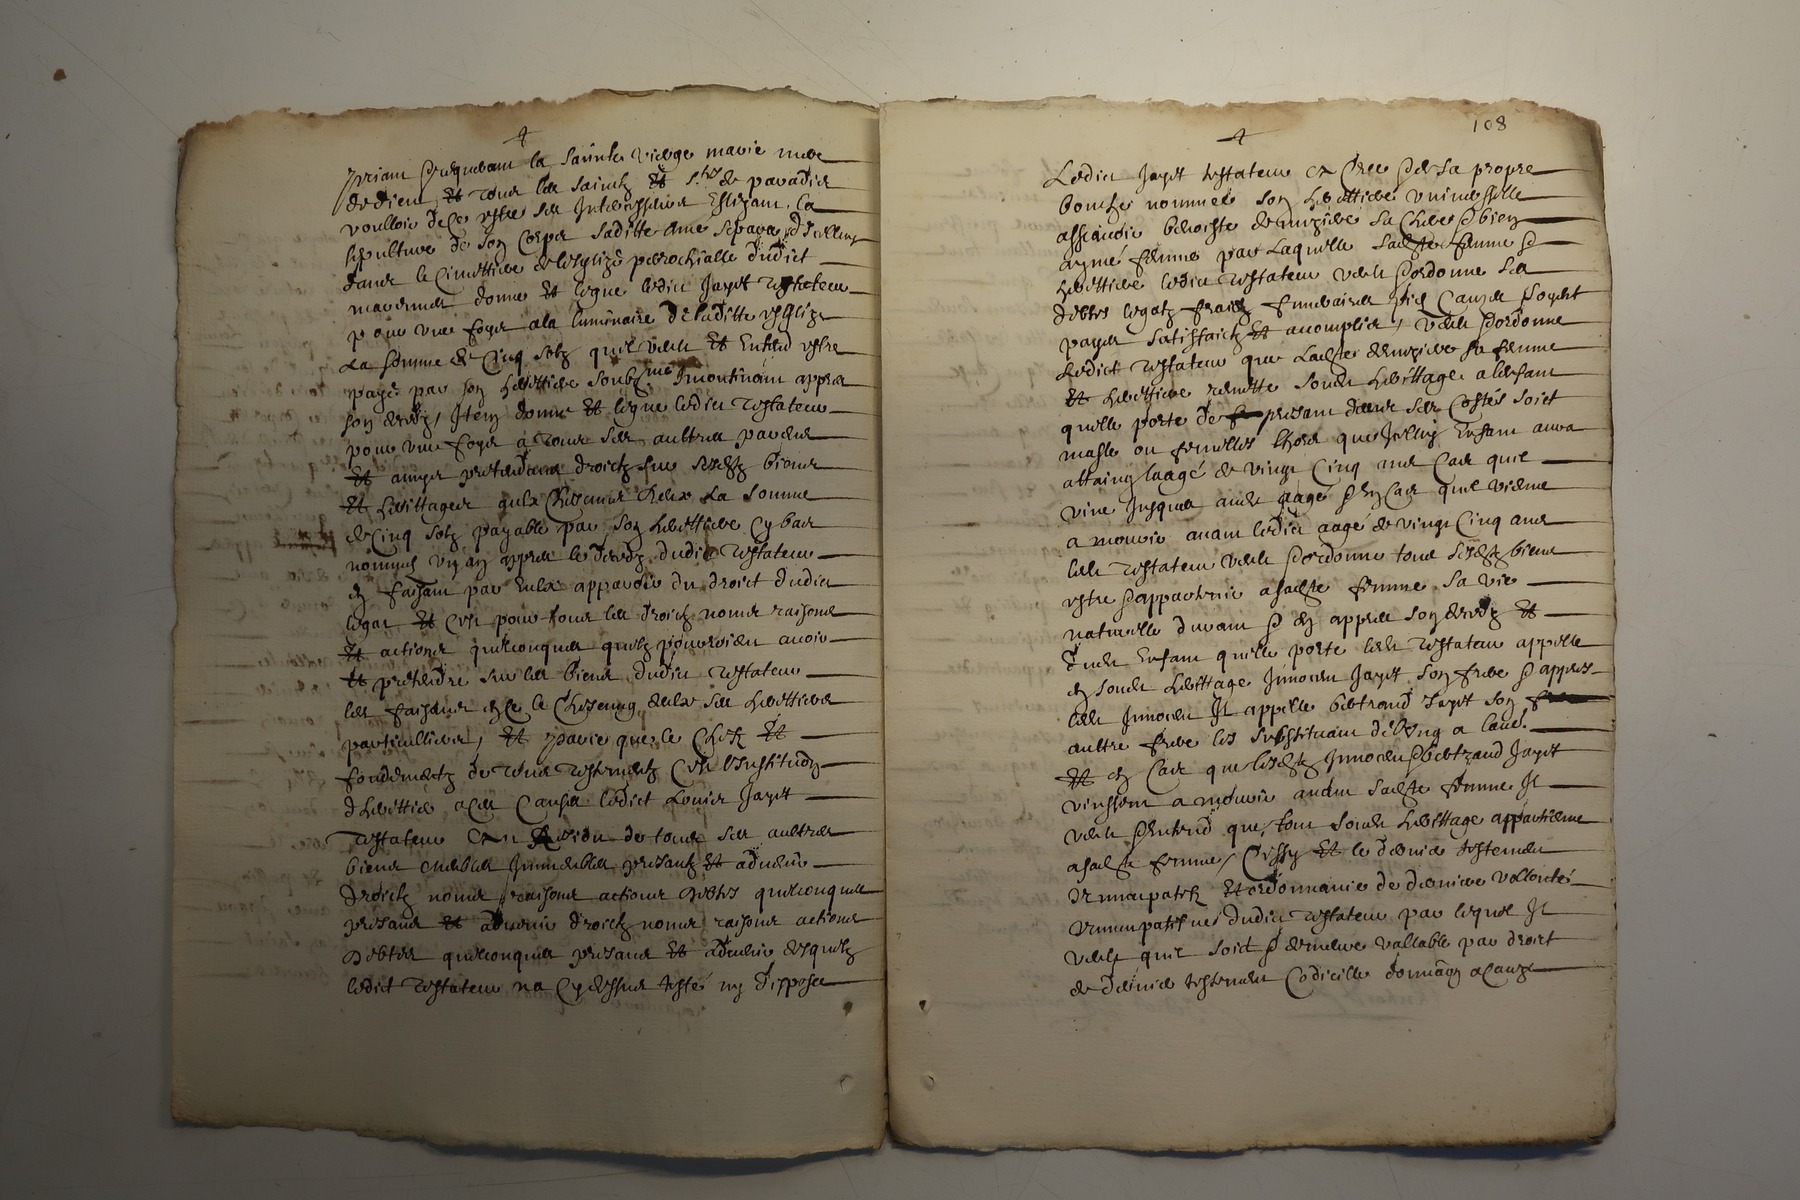 priant requerant la saincte vierge marie mere
de dieu et tous les sainctz et s.tes de paradis
voulloir de ce estre ses intercesseurs Eslizant la
sepulture de son Corps sadite ame separee dicelluy
dans le Cimettiere de lesglize parrochialle dudict
donne et legue ledict Jayet testateur
pour une foys a la luminaire de laditte esglize
La somme de Cinq solz quil veult et Entend estre
payé par son herettiere soubz nommée Incontinant appres
son deces, Item donne et legue ledict testateur
pour une foys a tous ses aultres parens
et amys pretendans droictz sur sesditz biens
et herittages a ung Chescung deulx La somme
de Cinq solz payable par son herettiere Cy bas
nommée ung an appres le deces dudict testateur
en faisant par eulx apparoir du droict dudict
legat et Cest pour tous les droictz noms raisons
et actions quelconques quilz pourroient avoir
et pretendre sur les biens dudict testateur
les faisant en ce le Chescung deulx ses herettiers
particulliers, et parce que le Chefz et
fondementz de tous testementz Cest l'institution
dherettier a Ces Causes ledict Louis Jayet
testateur de tous ses aultres
biens meubles Immeubles presantz et advenir
droictz noms raisons actions debtes quelconques
presans et advenir droictz noms raisons actions
debtes quelconques presans et advenir desquelz
ledict testateur na Cydessus testé ny dispose
108
Ledict Jayet testateur a Cree de sa propre
bouche nommée son herettiere universselle
assavoir benoiste sa Chere et bien
aymé femme par Laquelle sadite femme et
herettiere ledict testateur veult et ordonne ses
debtes legatz fraictz funeraires et piez Causes soyent
payes satisfaictz et acomplies, veult et ordonne
Ledict testateur que Ladite sa femme
et herettiere remette sondict herittage a lenfant
quelle porte de presant dans ses Costés soict
masle ou femelles lhors que Icelluy Enfant aura
attaint laagé de vingt Cinq ans Cas quil
vive Jusques audict aagé et en Cas quil vienne
a mourir avant ledict aagé de vingt Cinq ans
ledict testateur veult et ordonne tous sesditz biens
estre et appartenir a sadite femme sa vie
naturelle durant et en appres son deces et
dudict Enfant quelle porte ledict testateur appelle
en sondict herittage Innocent Jayet son frere et appres
ledict Innocent Il appelle bertrand Jayet son
aultre frere les substituant de l'ung a laut.
et en Cas que lesditz Innocent et bertrand Jayet
vinssent a mourir avant sadite femme Il
veult et Entend que tout sondict herittage appartienne
a sadite femme, Cessy et le dernier testement
nunncupatif et ordonnance de derniere vollonté
nunncupatifve dudict testateur par lequel Il
veult quil soict et demeure vallable par droict
de dernier testement Codicille donnation a Cause